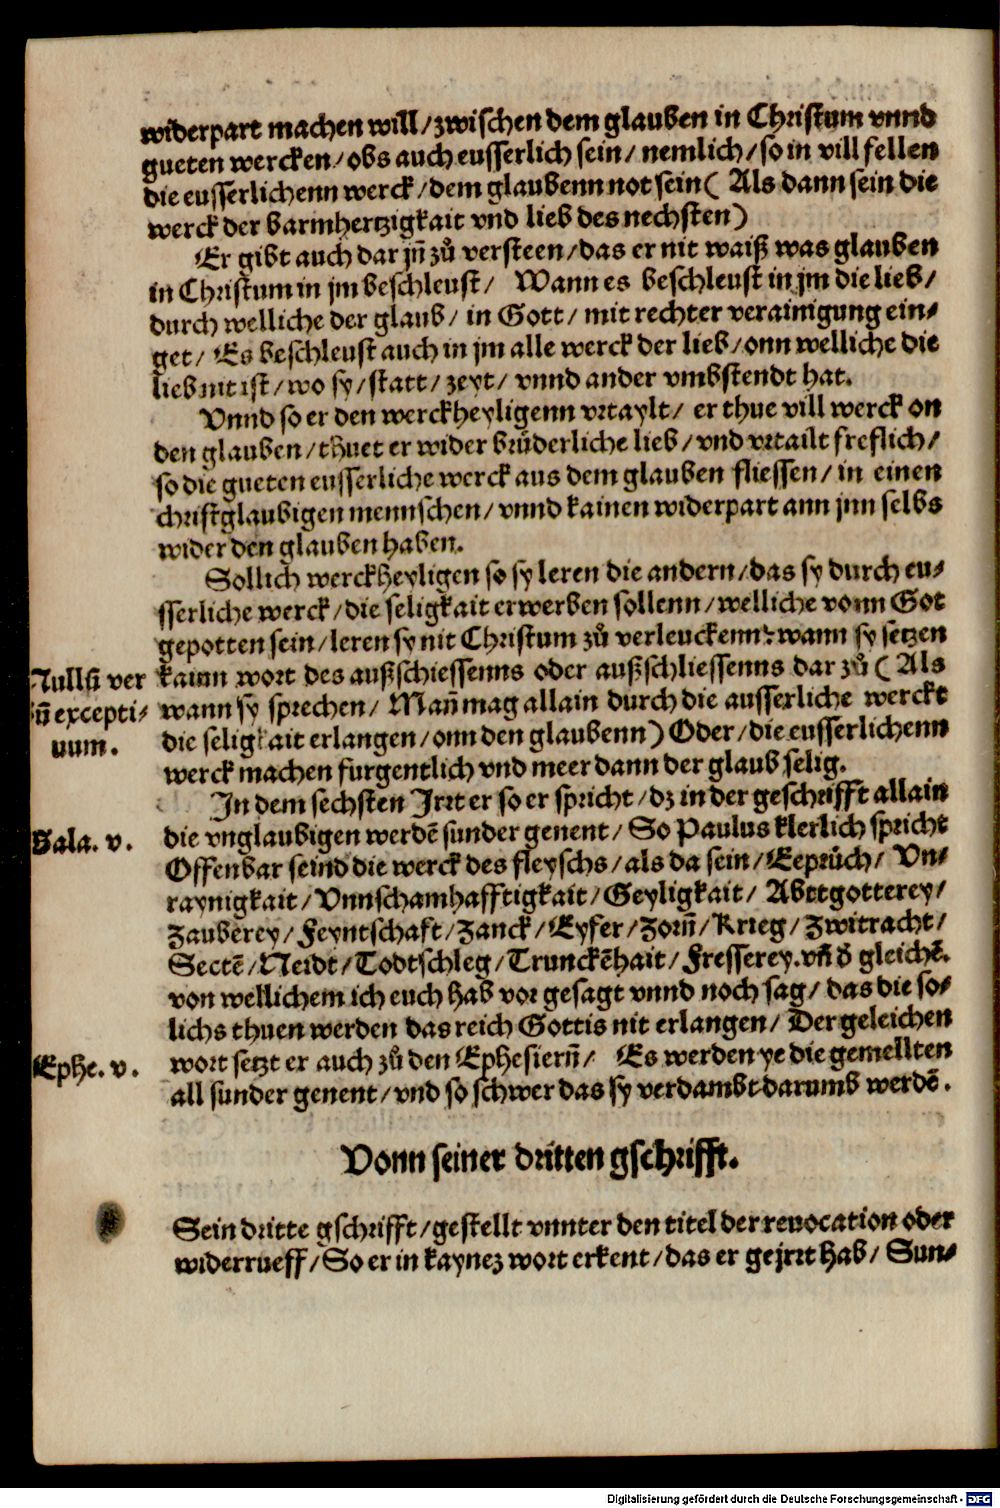 widerpart machen will/zwischen dem glauben in Christum vnnd
gueten wercken/obs auch eusserlich sein/nemlich/so in vill fellen
die eusserlichenn werck/dem glaubenn not sein( Als dann sein die
werck der barmhertzigkait vnd lieb des nechsten)
Er gibt auch dar jn̄ zů versteen/das er nit waiß was glauben
in Christum in jm beschleust/ Wann es beschleust in jm die lieb/
durch welliche der glaub/in Gott/mit rechter verainigung ein⸗
get/ Es beschleust auch in jm alle werck der lieb/onn welliche die
lieb nit ist/wo sy/statt/zeyt/vnnd ander vmbstendt hat.
Vnnd so er den werckheyligenn vrtaylt/ er thue vill werck on
den glauben/thuet er wider brüderliche lieb/vnd vrtailt freflich/
so die gueten eusserliche werck aus dem glauben fliessen/in einen
christglaubigen mennschen/vnnd kainen widerpart ann jnn selbs
wider den glauben haben.
Sollich werckheyligen so sy leren die andern/das sy durch eu⸗
sserliche werck/die seligkait erwerben sollenn/welliche vonn Got
gepotten sein/leren sy nit Christum zů verleuckenn/wann sy setzen
Nullū ver
kainn wort des außschiessenns oder außschliessenns dar zů( Als
bū excepti⸗
wann sy sprechen/Man̄ mag allain durch die ausserliche werckt
uum.
die seligkait erlangen/onn den glaubenn) Oder/die eusserlichenn
werck machen furgentlich vnd meer dann der glaub selig.
In dem sechsten Jrrt er so er spricht/dz in der geschrifft allain
Gala. v.
die vnglaubigen werdē sunder genent/So Paulus klerlich spricht
Offenbar seind die werck des fleyschs/als da sein/Eeprüch/Vn⸗
raynigkait/Vnnschamhafftigkait/Geyligkait/Abttgotterey/
Zauberey/Feyntschaft/Zanck/Eyfer/Zorn̄/Krieg/Zwitracht/
Sectē/Neidt/Todtschleg/Trunckēhait/Fresserey.vn̄ ð gleichē.
von wellichem ich euch hab vor gesagt vnnd noch sag/das die so⸗
lichs thuen werden das reich Gottis nit erlangen/Der geleichen
Ephe. v.
wort setzt er auch zů den Ephesiern̄/ Es werden ye die gemellten
all sunder genent/vnd so schwer das sy verdambt darumb werdē.
Vonn seiner dritten gschrifft.
Sein dritte gschrifft/gestellt vnnter den titel der reuocation oder
widerrueff/So er in kaynez wort erkent/das er gejrrt hab/Sun⸗
Digitalisierung gefördert durch die Deutsche Forschungsgemeinschaft - DFG